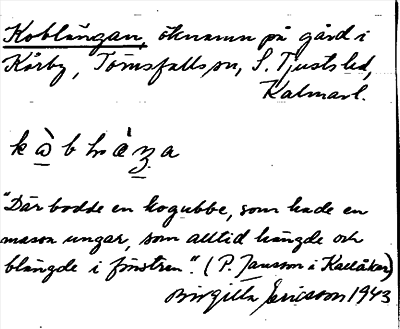 Koblängan, öknamn på gård i
Kårby, Törnsfalls sn, S. Tjusts hd,
Kalmar l.
"Där bodde en kogubbe, som hade en
massa ungar, som alltid hängde och
blängde i fönstren". (P. Jansson i
Birgitta Ericsson 1943